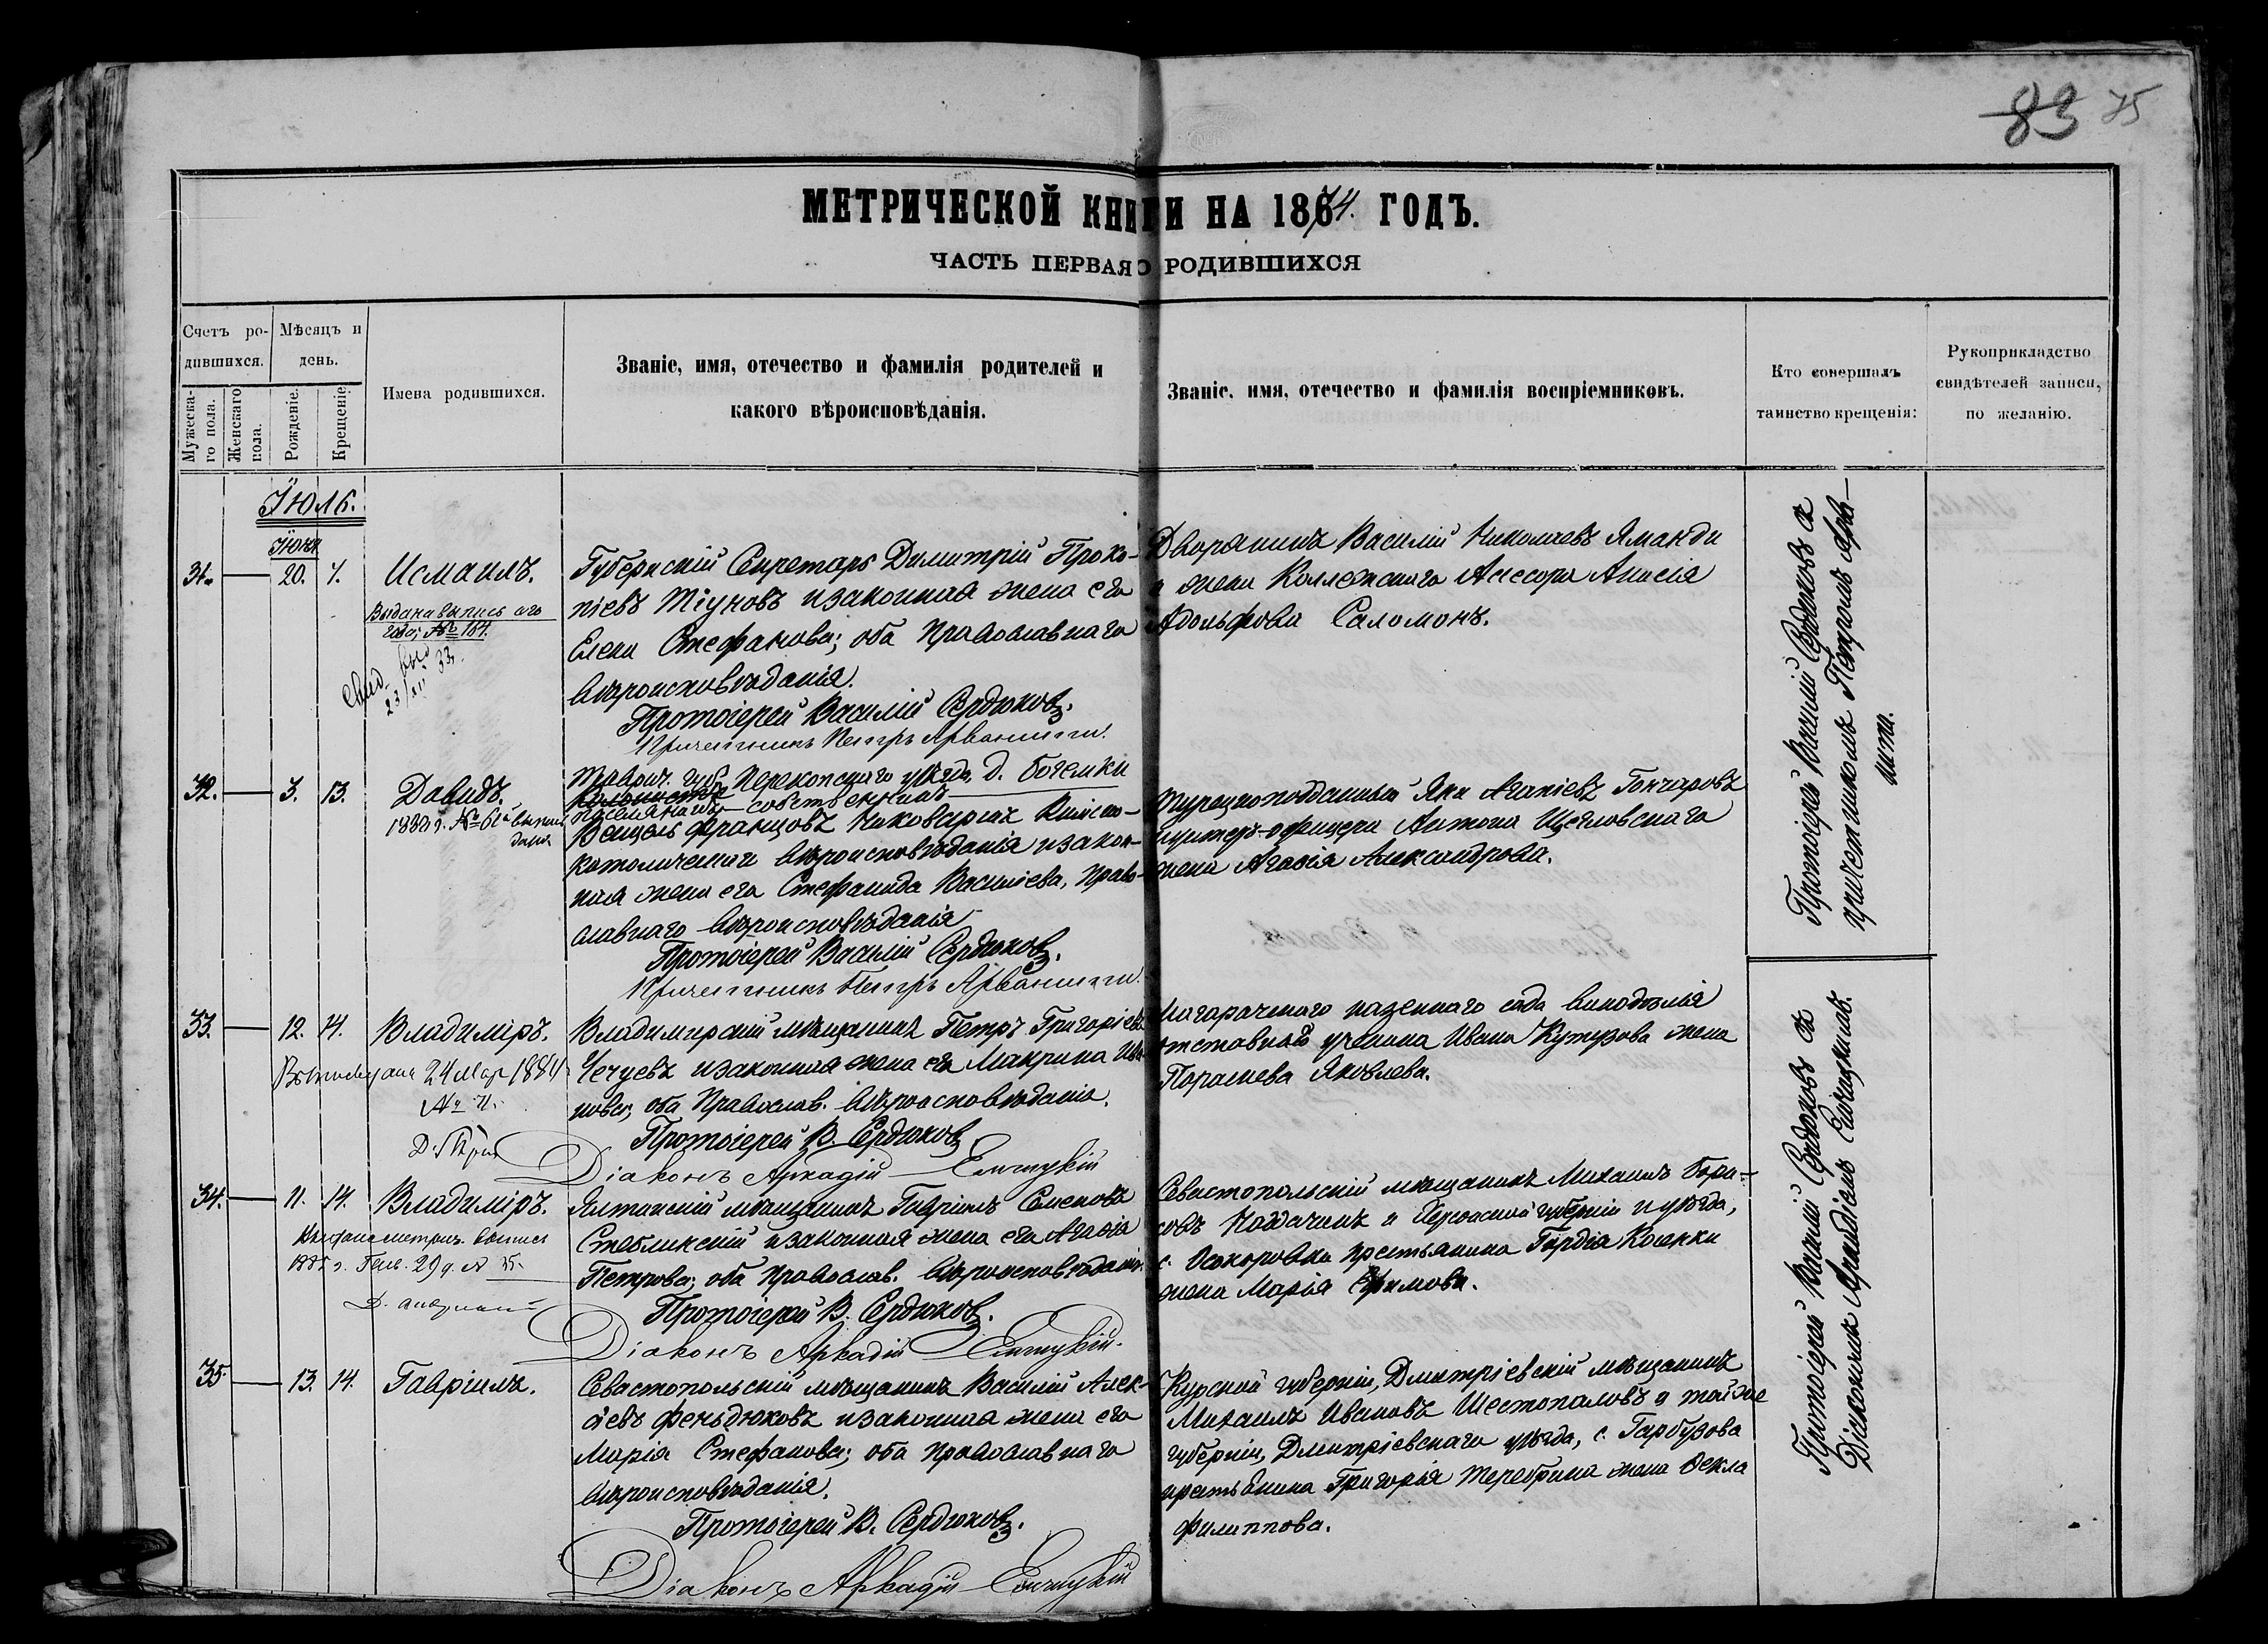 83 75
МЕТРИЧЕСКОЙ КНИГИ НА 1874. ГОДЪ.
ЧАСТЬ ПЕРВАЯ О РОДИВШИХСЯ
Счетъ ро-
дившихся.
Мужеска-
го пола.
Женскаго
пола.
Мѣсяцъ и
день.
Рожденіе.
Крещеніе
Имена родившихся.
Званіе, имя, отечество и фамилія родителей и
какого вѣроисповѣданія.
Званіе, имя, отечество и фамилія воспріемниковъ.
Кто совершалъ
таинство крещенія:
Рукоприкладство
свидѣтелей записи,
по желанію.
Іюль.
Іюня
31. 20. 7. Исмаилъ.
Выдана выпись его
№ 164.
23/XII 33.
Губернскій Секретарь Димитрій Проко-
піевъ Тіуновъ и законная жена его
Елена Стефанова; оба Православнаго
вѣроисповѣданія.
Протоіерей Василій Сердюковъ.
Причетникъ Петръ Арванити.
Дворянинъ Василій Николаевъ Яманди
и жена Коллежскаго Ассесора Анисія
Адольфова Саломонъ.
Протоіерей Василій Сердюковъ съ
причетникомъ Петромъ Арва-
нити.
32. 3. 13. Давидъ.
1883 г. № 61й выпись
дана
Таврич. губ. Перекопскаго уѣзда, д. Богемки
поселянинъ собственникъ
Венцель Францовъ Римско-
католическаго вѣроисповѣданія и закон-
ная жена его Стефанида Василіева, Право-
славнаго вѣроисповѣданія
Протоіерей Василій Сердюковъ.
Причетникъ Петръ Арванити.
Турецкоподданный Яни Аганіевъ Гончаровъ
Унтеръ-офицера Антона Щегловскаго
жена Агафія Александрова.
33. 12. 14. Владиміръ.
24 Мар 1884
Владимирскій мѣщанинъ Петръ Григоріевъ
Чечуевъ и законная жена его Макрина Ива-
нова; оба Православ. вѣроисповѣданія.
Протоіерей В. Сердюковъ
Діаконъ Аркадій
Магарачскаго казеннаго сада винодѣлія
отставнаго ученика Ивана Кутузова жена
Параскева Яковлева.
Протоіерей Василій Сердюковъ съ
Діакономъ Аркадіемъ
34. 11. 14. Владиміръ.
Выдана метрич. выпись
Ялтинскій мѣщанинъ Гавріилъ Семеновъ
Стеблинскій и законная жена его Агафія
Петрова; оба Православ. вѣроисповѣданія.
Протоіерей В. Сердюковъ.
Діаконъ Аркадій
Севастопольскій мѣщанинъ Михаилъ Бори-
совъ и Херсонской губерніи и уѣзда,
с. Осокоровки крестьянина Гордія Косенки
жена Марія Ефимова.
35. 13. 14. Гавріилъ.
Севастопольскій мѣщанинъ Василій Алек-
ѣевъ Феньдюковъ и законная жена его
Марія Стефанова; оба Православнаго
вѣроисповѣданія.
Протоіерей В. Сердюковъ.
Діаконъ Аркадій
Курской губерніи, Дмитріевскій мѣщанинъ
Михаилъ Ивановъ Шестопаловъ и той же
губерніи, Дмитріевскаго уѣзда, с. Гарбузова
крестьянина Григорія Теребрина жена Ѳекла
Филиппова.